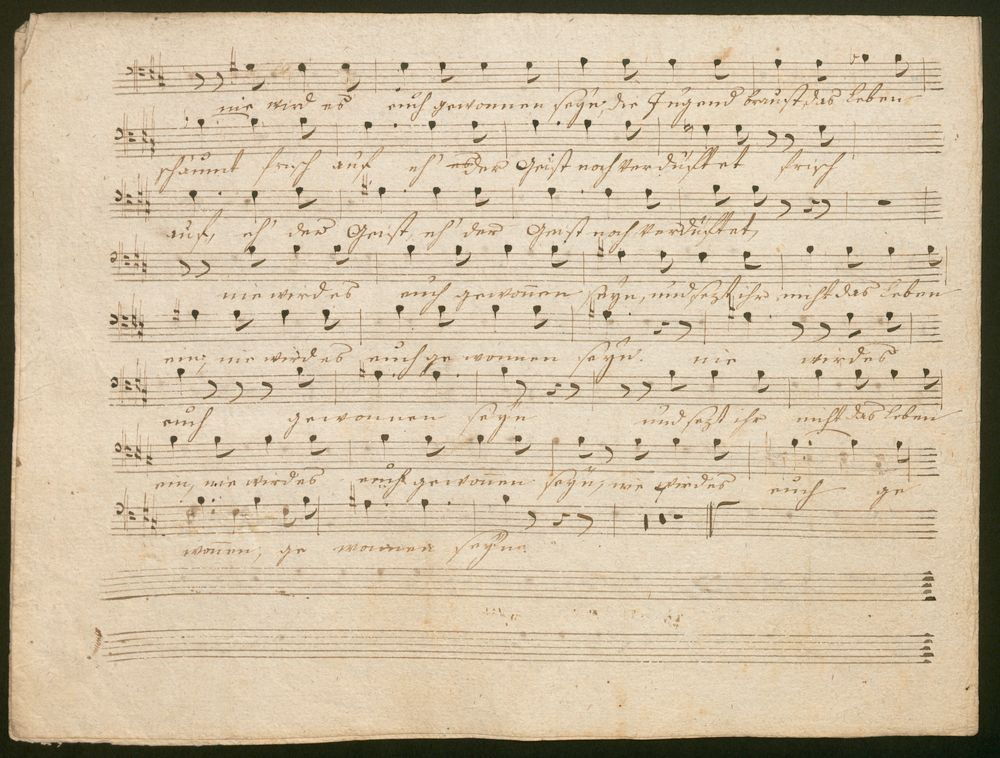 nie wird es euch gewonnen seÿn, die Jugend braust das Leben
schäumt frisch auf eh' der Geist noch verdüftet frisch
auf, eh' der Geist eh' der Geist noch verdüftet,
nie wird es euch gewon̄en seyn, und sezt ihr nicht das Leben
ein, nie wird es euch ge wonnen seÿn. nie wird es
euch gewonnen seÿn und sezt ihr nicht das Leben
ein, nie wird es euch gewon̄en seÿn, nie wird es euch ge
won̄en, ge wonnen seÿn.